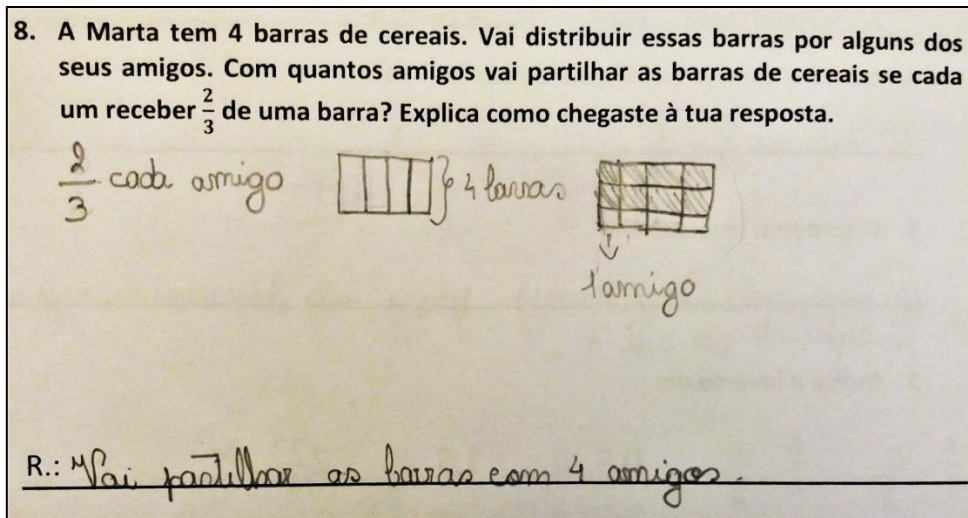 8. A Marta tem 4 barras de cereais. Vai distribuir essas barras por alguns dos
seus amigos. Com quantos amigos vai partilhar as barras de cereais se cada
um receber 2/3 de uma barra? Explica como chegaste à tua resposta.
2/3 cada amigo
4 barras
1 amigo
R.: Vai partilhar as barras com 4 amigos.